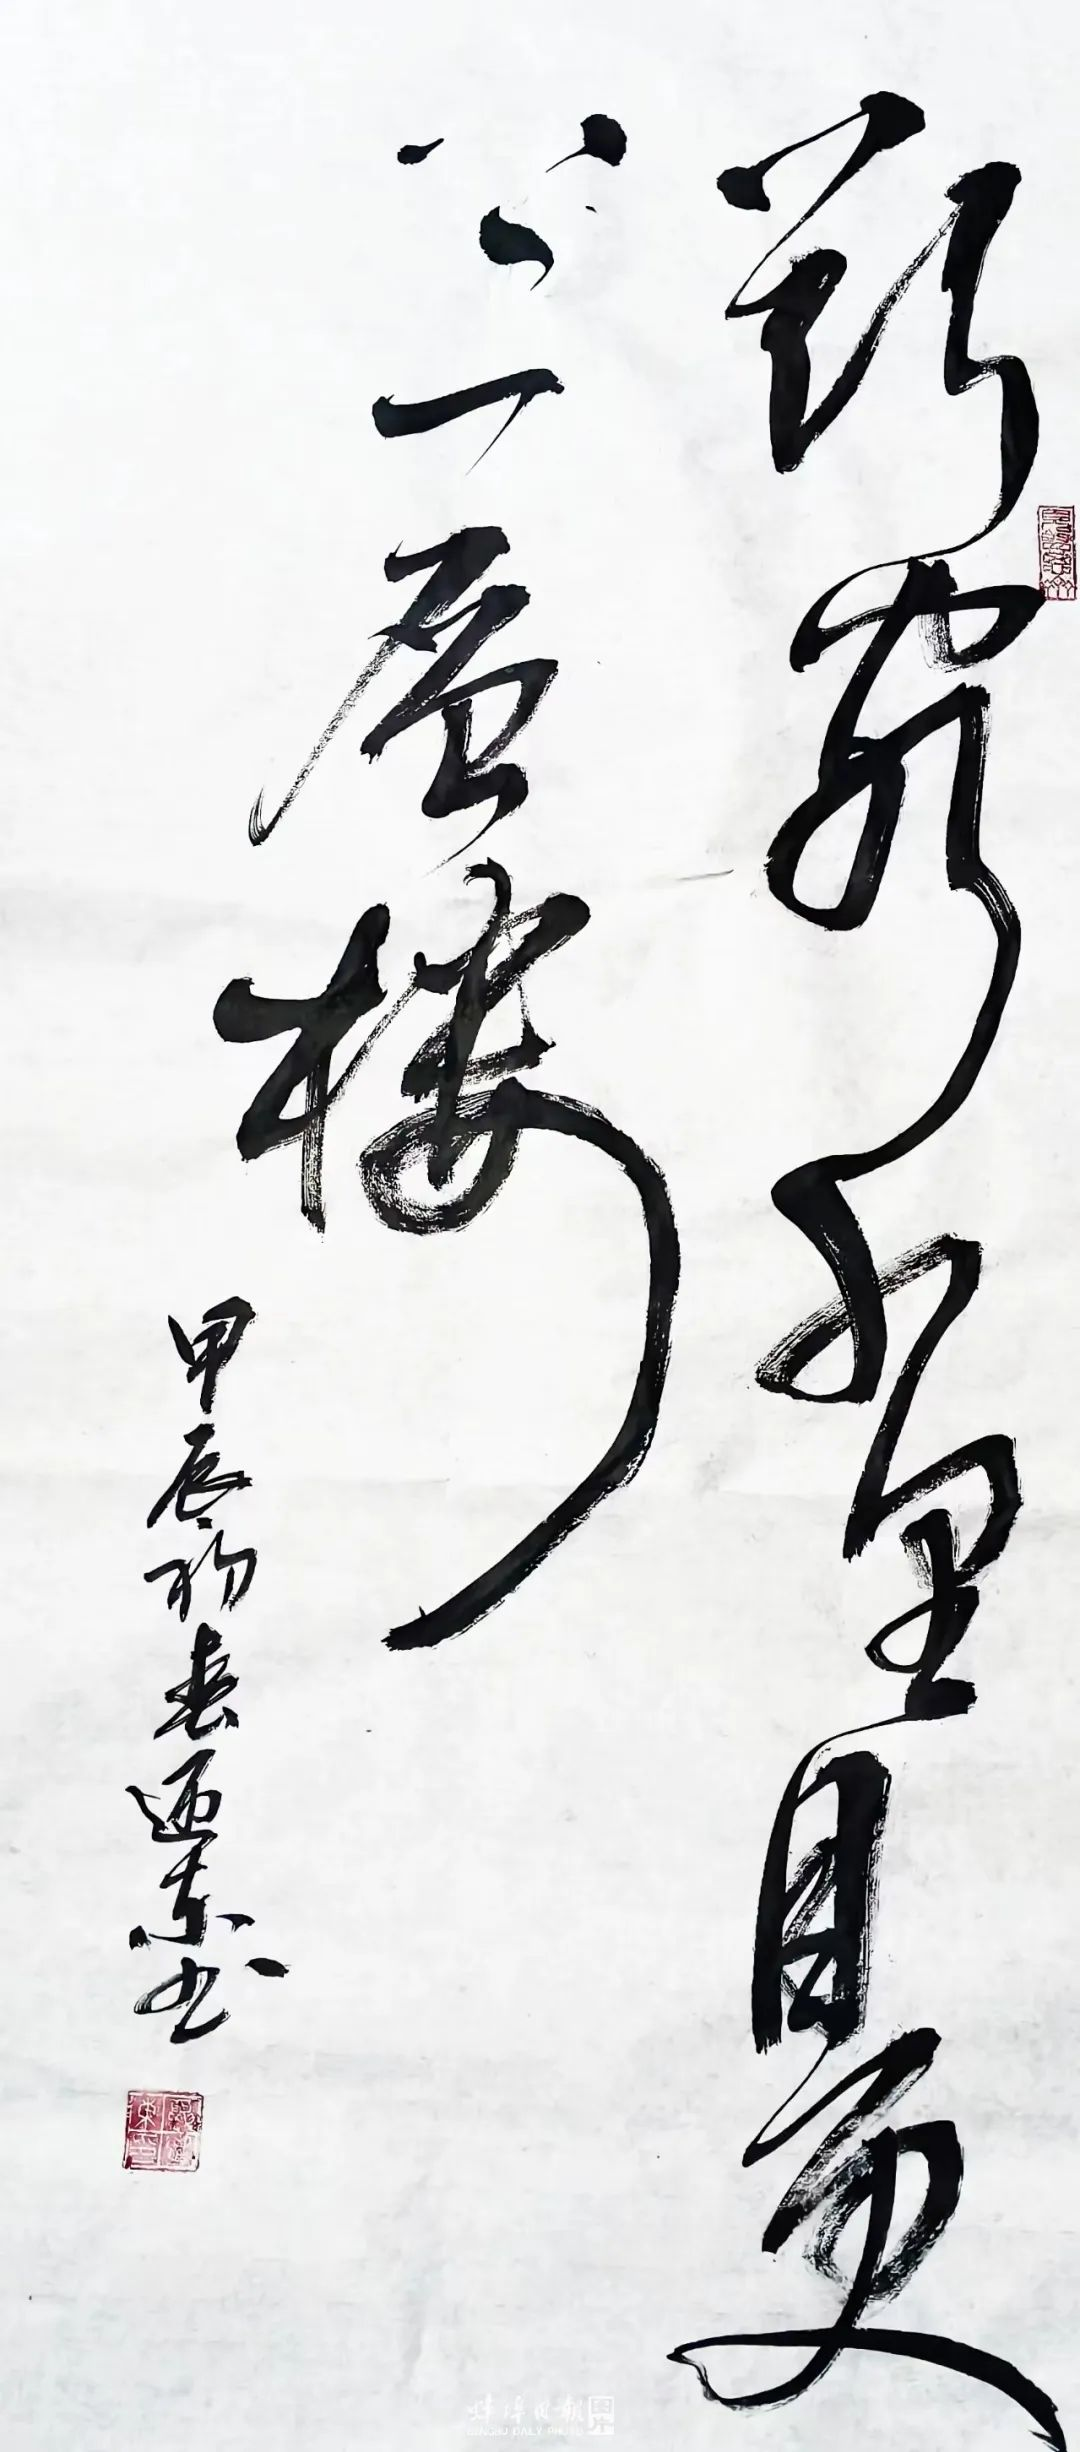 欲穷千里目更
上一层楼
甲辰初春迺东书
蚌埠日報
BENGBU DAILY PHOTO